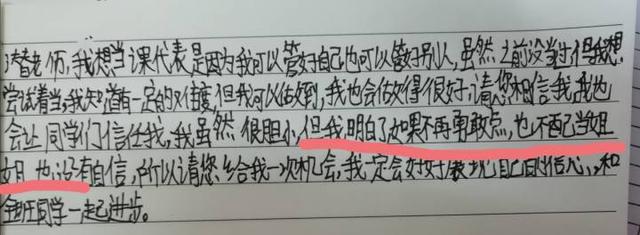 潜老师,我想当课代表是因为我可以管好自己也可以管好别人,虽然之前没当过但我想
尝试着当,我知道有一定的难度,但我可以做到,我也会做得很好,请您相信我,我也
会让同学们信任我,我虽然很胆小,但我明白了如果不再勇敢点,也不配当姐
姐,也没有自信,所以请您给我一次机会,我一定会好好展现自己的信心,和
全班同学一起进步。